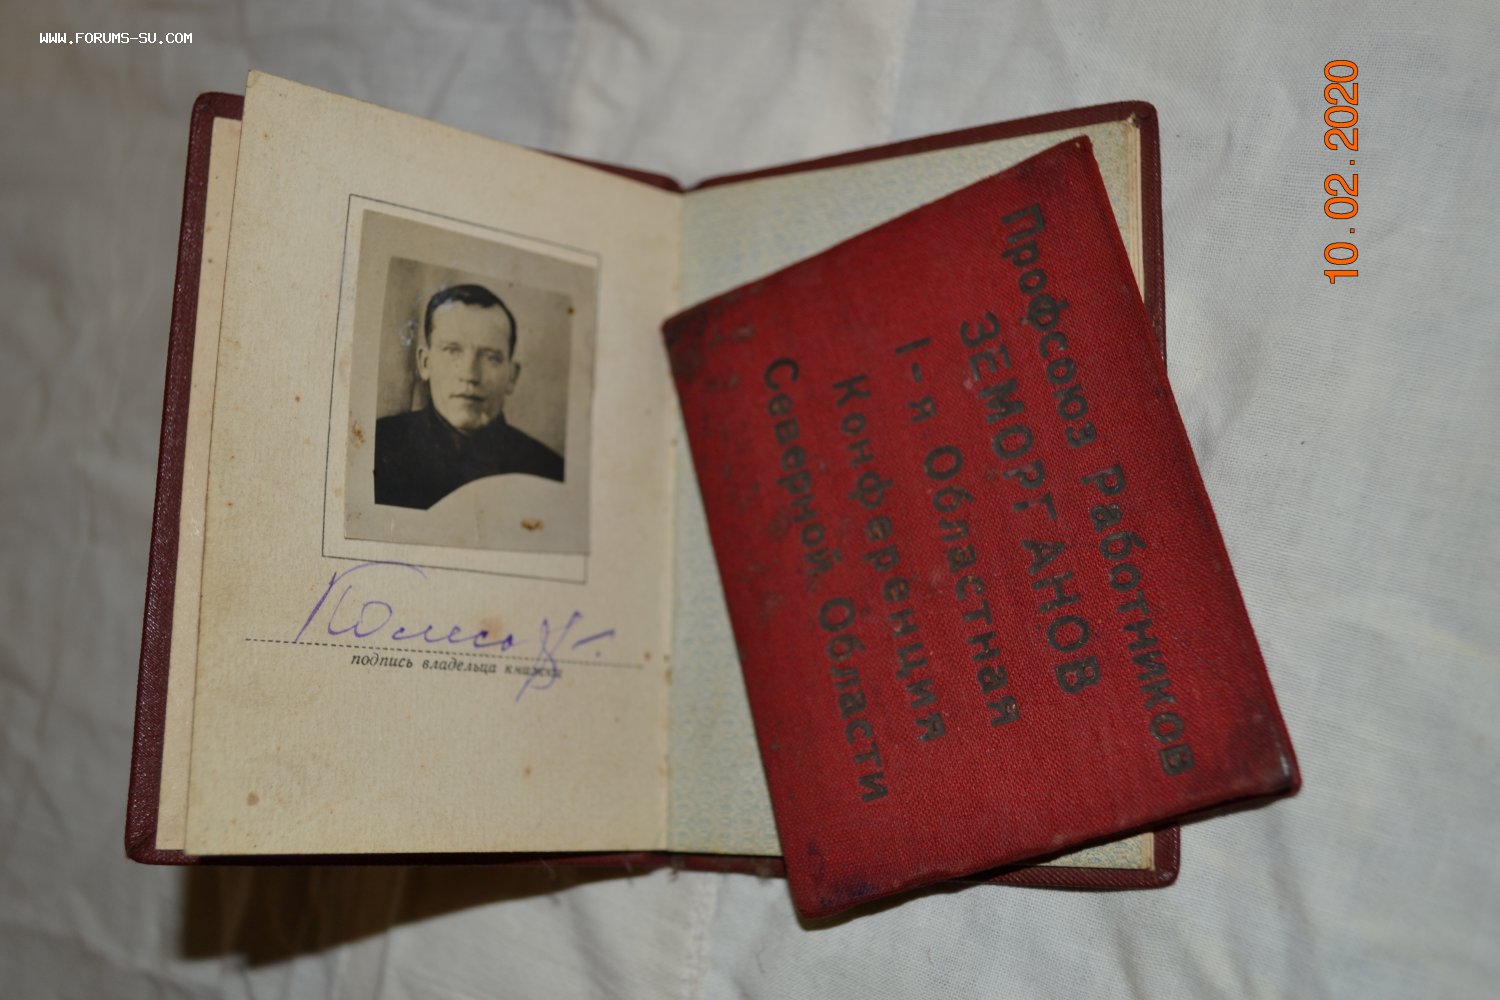 WWW.FORUMS-SU.COM
10.02.2020
подпись владельца книжки
Профсоюз работников
ЗЕМОРГАНОВ
I-я Областная
Конференция
Северной Области